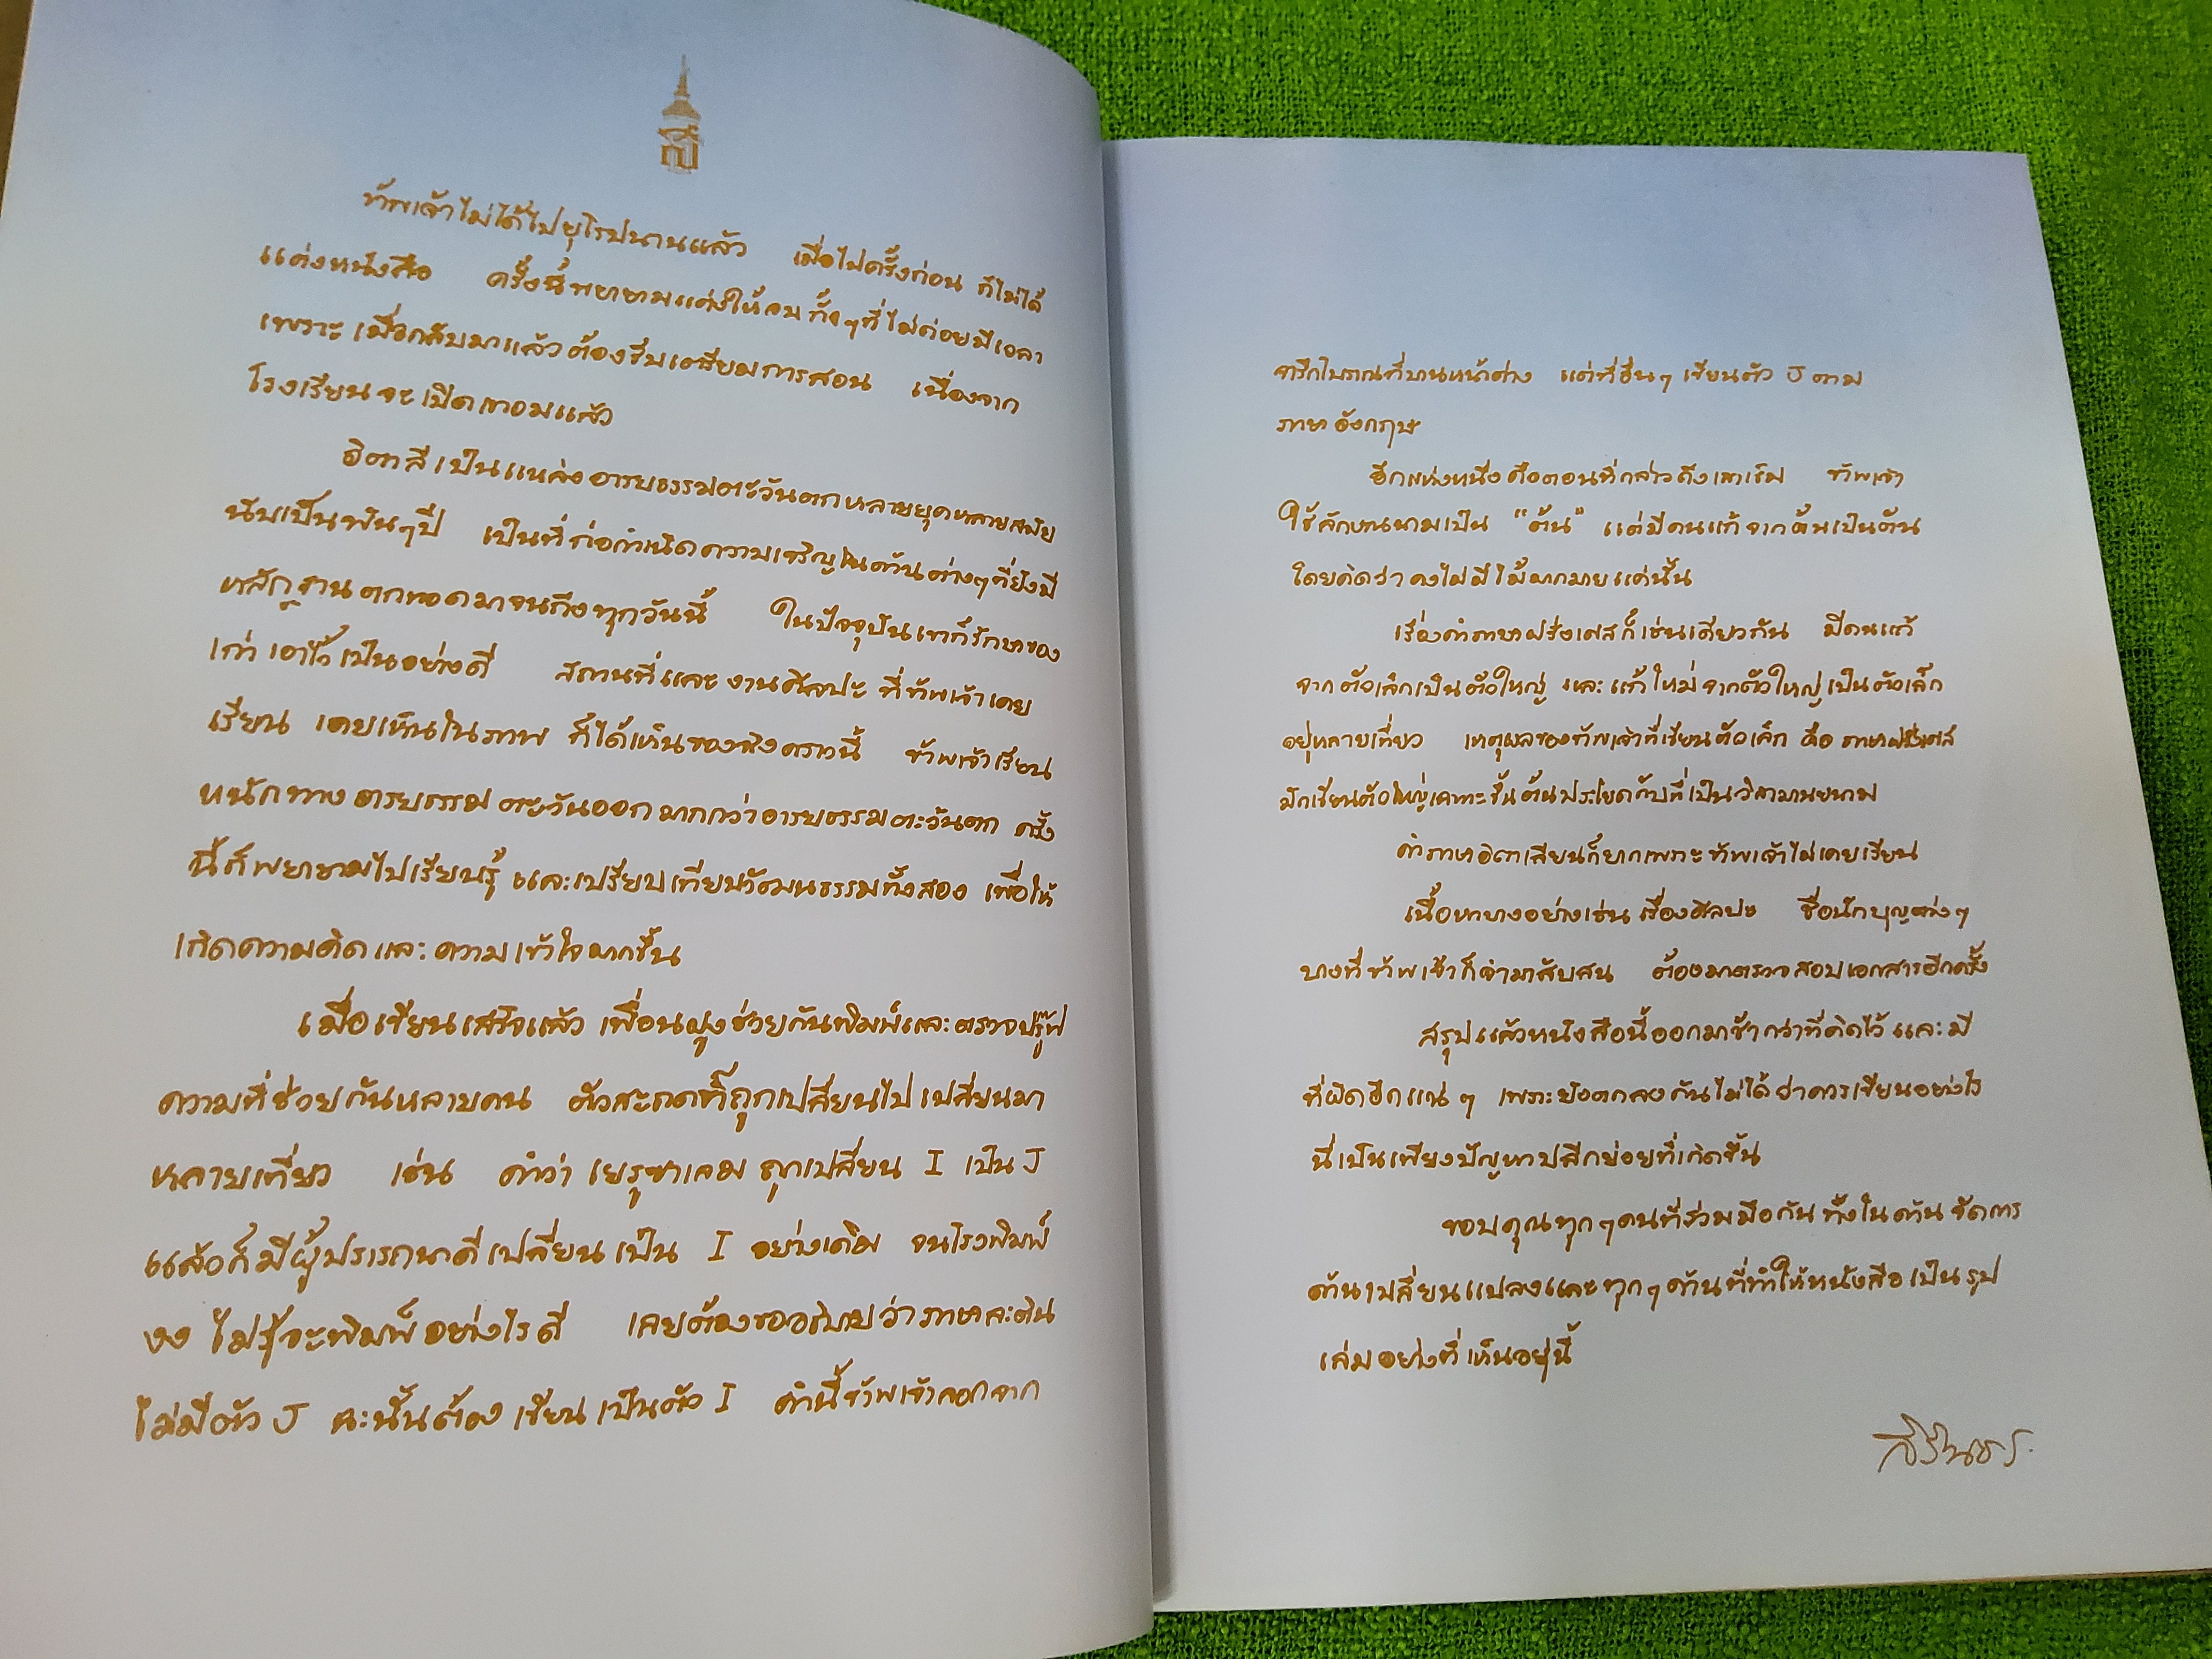 สธ
ข้าพเจ้าไม่ได้ไปยุโรปนานแล้ว เมื่อไปครั้งก่อน ก็ไม่ได้
แต่งหนังสือ ครั้งนี้พยายามแต่งให้จบ ทั้งๆที่ไม่ค่อยมีเวลา
เพราะเมื่อกลับมาแล้วต้องรีบเตรียมการสอน เนื่องจาก
โรงเรียนจะเปิดเทอมแล้ว
อิตาลีเป็นแหล่งอารยธรรมตะวันตกหลายยุคหลายสมัย
นับเป็นพันๆปี เป็นที่ก่อกำเนิดความเจริญในด้านต่างๆที่ยังมี
หลักฐานตกทอดมาจนถึงทุกวันนี้ ในปัจจุบันเขาก็รักษาของ
เก่าเอาไว้เป็นอย่างดี สถานที่และงานศิลปะ ที่ข้าพเจ้าเคย
เรียน เคยเห็นในภาพ ก็ได้เห็นของจริงคราวนี้ ข้าพเจ้าเรียน
หนักทางอารยธรรมตะวันออกมากกว่าอารยธรรมตะวันตก ครั้ง
นี้ก็พยายามไปเรียนรู้ และเปรียบเทียบวัฒนธรรมทั้งสอง เพื่อให้
เกิดความคิดและความเข้าใจมากขึ้น
เมื่อเขียนเสร็จแล้ว เพื่อนฝูงช่วยกันพิมพ์และตรวจปรู๊ฟ
ความที่ช่วยกันหลายคน ตัวสะกดก็ถูกเปลี่ยนไปเปลี่ยนมา
หลายเที่ยว เช่น คำว่า เยรูซาเลม ถูกเปลี่ยน I เป็น J
แล้วก็มีผู้ปรารถนาดีเปลี่ยนเป็น I อย่างเดิม จนโรงพิมพ์
งง ไม่รู้จะพิมพ์อย่างไรดี เลยต้องขออธิบายว่าภาษาละติน
ไม่มีตัว J ฉะนั้นต้องเขียนเป็นตัว I คำนี้ข้าพเจ้าลอกจาก
จารึกโบราณที่บานหน้าต่าง แต่ที่อื่นๆ เขียนตัว J ตาม
ภาษาอังกฤษ
อีกแห่งหนึ่งคือตอนที่กล่าวถึงเสาเข็ม ข้าพเจ้า
ใช้ลักษณนามเป็น "ต้น" แต่มีคนแก้จากต้นเป็นตัน
โดยคิดว่าคงไม่มีไม้มากมายแค่นั้น
เรื่องคำภาษาฝรั่งเศสก็เช่นเดียวกัน มีคนแก้
จากตัวเล็กเป็นตัวใหญ่ และแก้ใหม่จากตัวใหญ่เป็นตัวเล็ก
อยู่หลายเที่ยว เหตุผลของข้าพเจ้าที่เขียนตัวเล็ก คือ ภาษาฝรั่งเศส
มักเขียนตัวใหญ่เฉพาะขึ้นต้นประโยคกับที่เป็นวิสามานยนาม
คำภาษาอิตาเลียนก็ยากเพราะข้าพเจ้าไม่เคยเรียน
เนื้อหาบางอย่างเช่นเรื่องศิลปะ ชื่อนักบุญต่างๆ
บางทีข้าพเจ้าก็จำมาสับสน ต้องมาตรวจสอบเอกสารอีกครั้ง
สรุปแล้วหนังสือนี้ออกมาช้ากว่าที่คิดไว้ และมี
ที่ผิดอีกแน่ๆ เพราะยังตกลงกันไม่ได้ว่าควรเขียนอย่างไร
นี่เป็นเพียงปัญหาปลีกย่อยที่เกิดขึ้น
ขอบคุณทุกๆคนที่ร่วมมือกัน ทั้งในด้านจัดการ
ด้านเปลี่ยนแปลงและทุกๆด้านที่ทำให้หนังสือเป็นรูป
เล่มอย่างที่เห็นอยู่นี้
สิรินธร